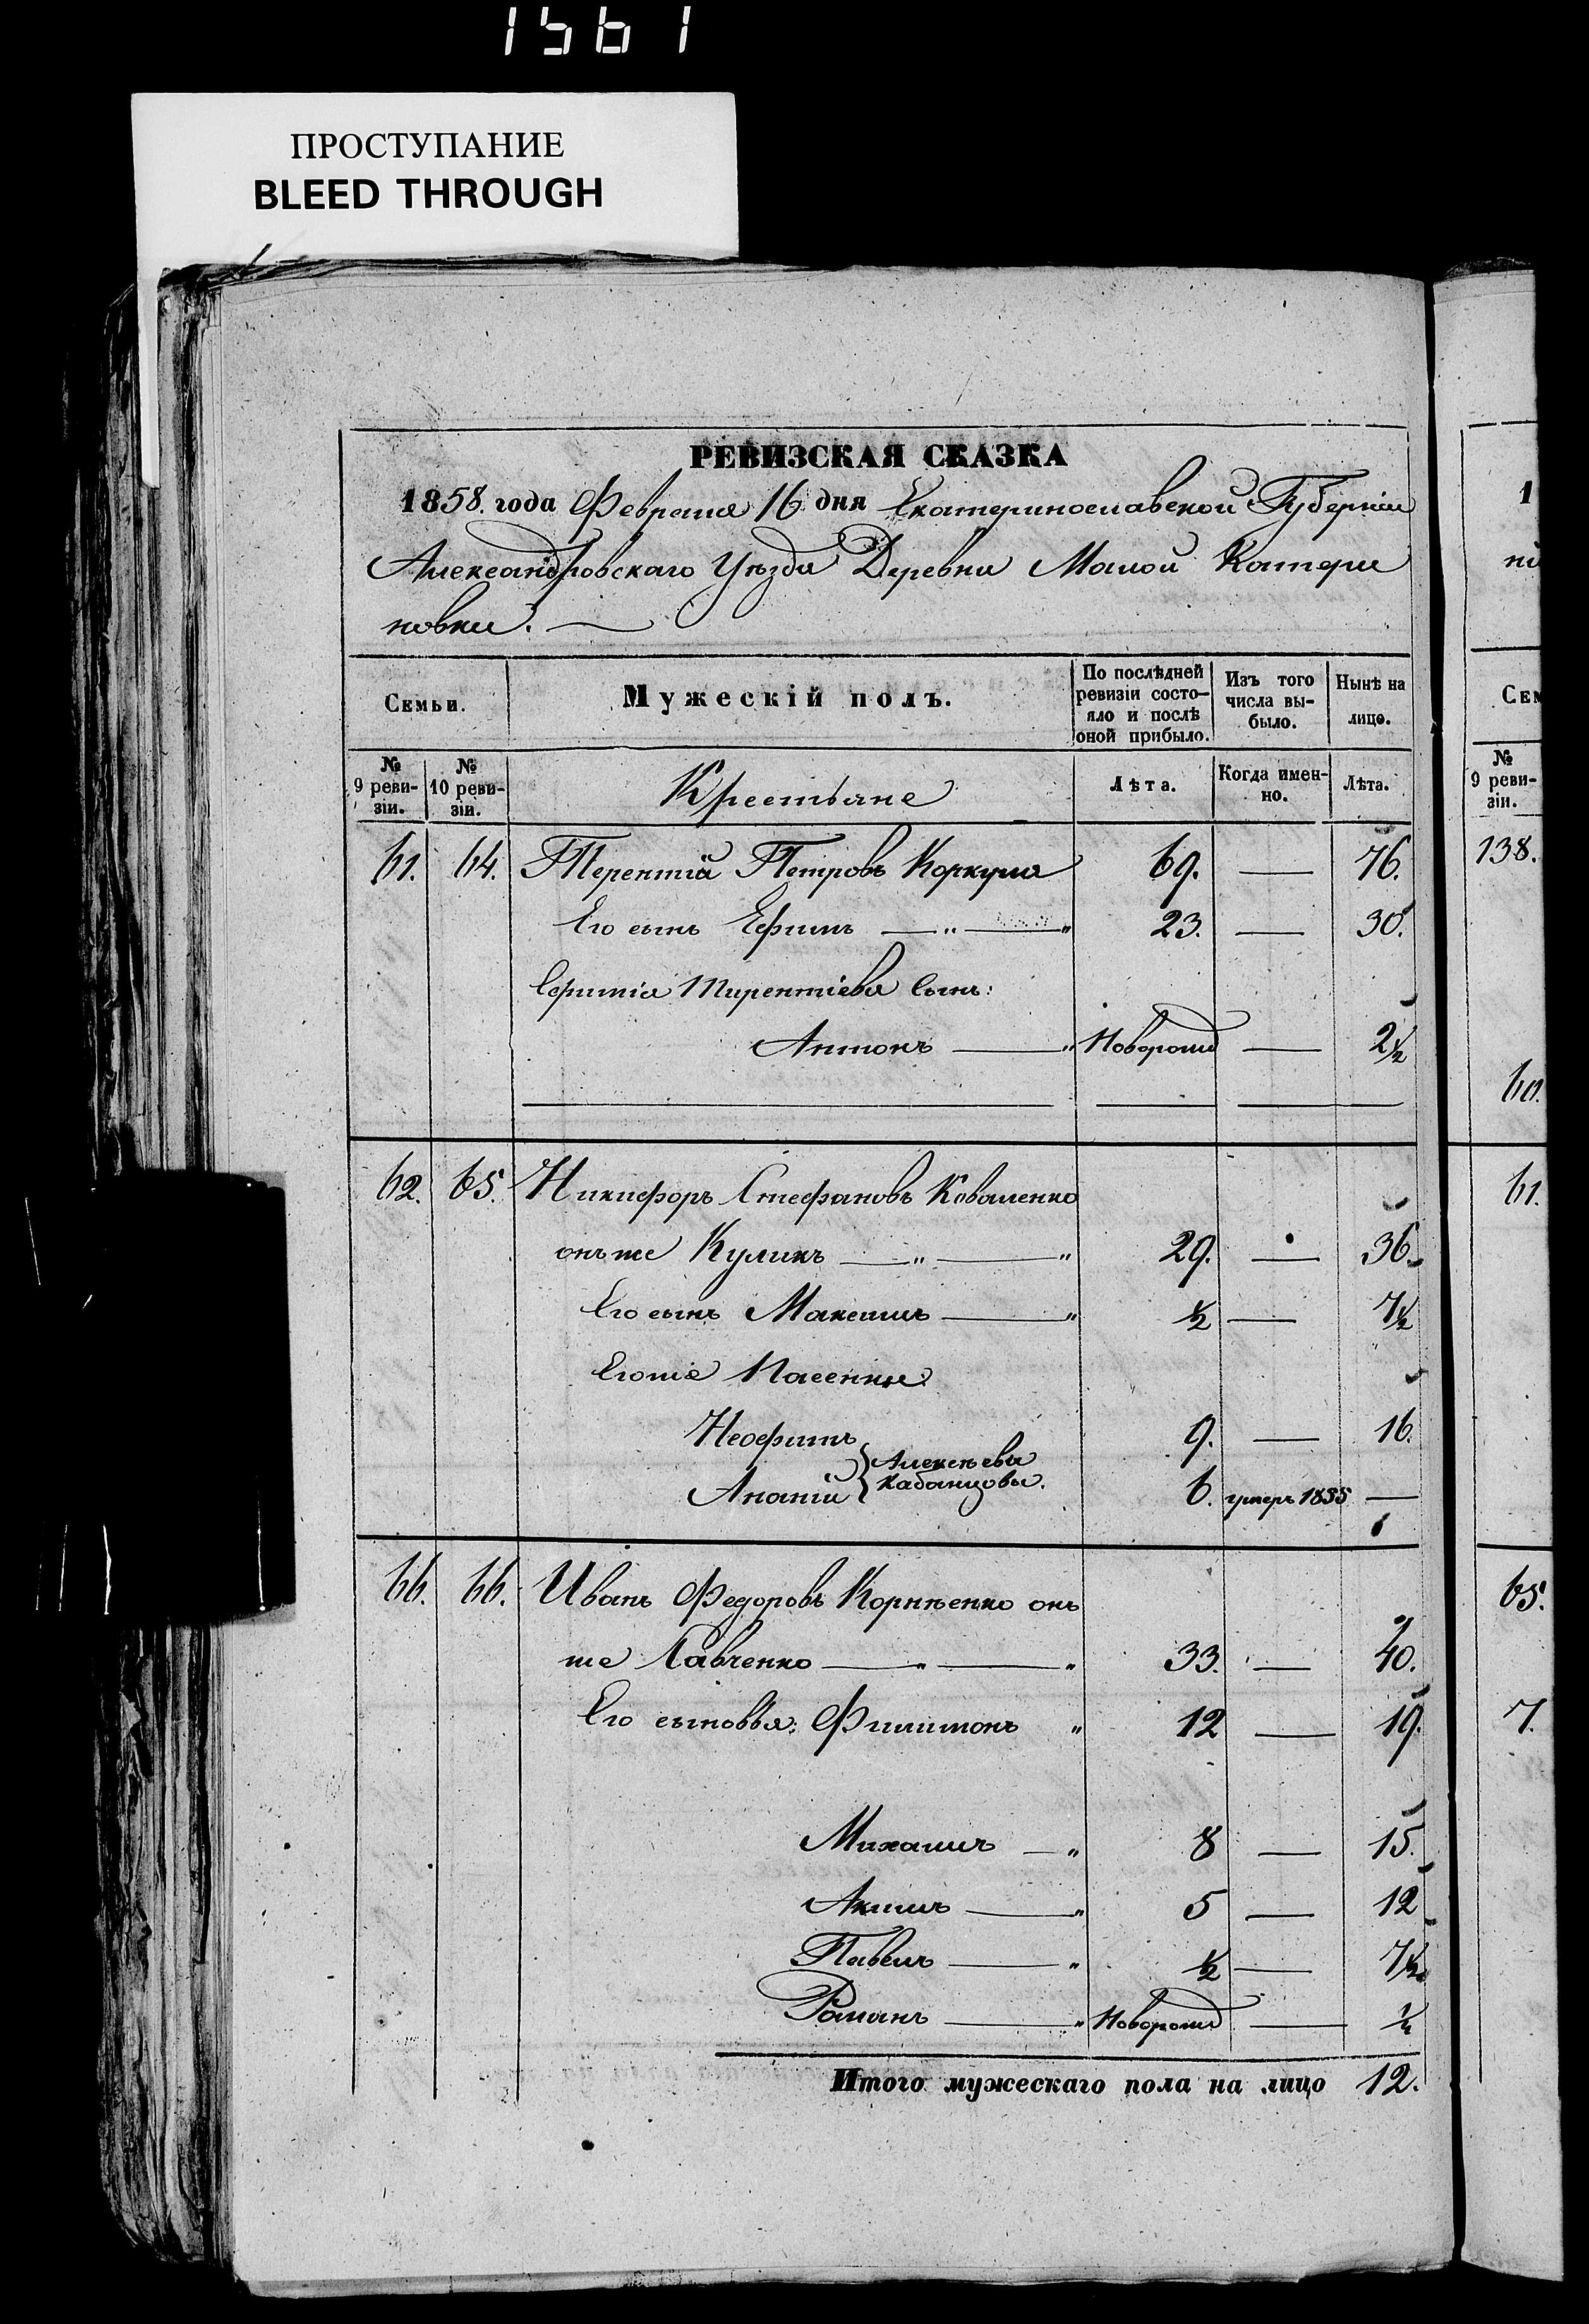 1561
ПРОСТУПАНИЕ
BLEED THROUGH
РЕВИЗСКАЯ СКАЗКА
1858. года Февраля 16 дня Екатеринославской Губерніи
Александровскаго Уѣзда Деревни Малой Катери
новки.
Семьи.
Мужескій полъ.
По послѣдней ревизіи состо-
яло и послѣ оной прибыло.
Изъ того числа вы-
было.
Нынѣ на лицо.
№ 9 реви-
зіи.
№ 10 реви-
зіи.
Крестьяне
Лѣта.
Когда имен-
но.
Лѣта.
61. 64. Терентій Петровъ Коркуша 69. — 76.
Его сынъ Ефимъ — „ — „ 23. — 30.
Ефима Терентіева Сынъ:
Антонъ — „ Новорожд — 2½
62. 65. Никифоръ Стефановъ Коваленко
онъ же Куликъ — „ — „ 29. — 36.
Его сынъ Максимъ — „ ½ — 7½
Егоже Пасенки
Неофитъ 9. — 16.
Алексѣевы
Кабанцовы.
Ананій 6. умеръ 1855 —
66. 66. Иванъ Федоровъ Корнѣенко онъ
же Савченко — „ — „ 33. — 40.
Его сыновья: Филимонъ „ 12 — 19.
Михаилъ — „ 8 — 15.
Акимъ — „ 5 — 12
Павелъ — „ ½ — 7½
Романъ — „ Новорожд —
Итого мужескаго пола на лицо 12.
1
ни
Сем
№ 9 реви-
зіи.
138.
60.
61.
65.
7.